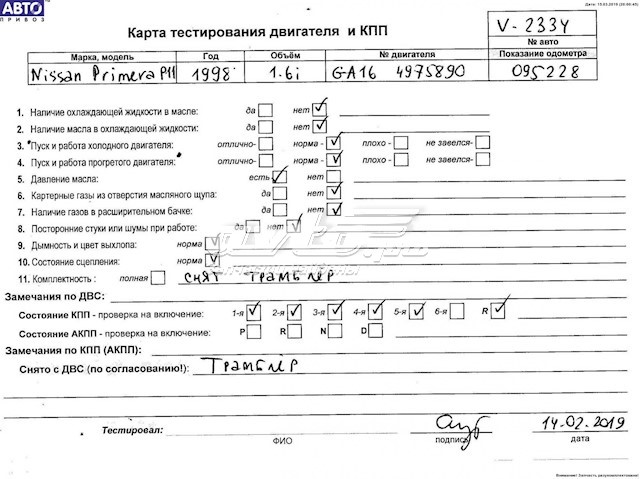 АВТО
ПРИВОЗ
Карта тестирования двигателя и КПП
V-2334
№ авто
Марка, модель Год Объём № двигателя Показание одометра
Nissan Primera P11 1998 1.6i GA16 4975890 095228
1. Наличие охлаждающей жидкости в масле: да нет
2. Наличие масла в охлаждающей жидкости: да нет
3. Пуск и работа холодного двигателя: отлично- норма - плохо - не завелся-
4. Пуск и работа прогретого двигателя: отлично- норма - плохо - не завелся-
5. Давление масла: есть нет
6. Картерные газы из отверстия масляного щупа: да нет
7. Наличие газов в расширительном бачке: да нет
8. Посторонние стуки или шумы при работе: да нет
9. Дымность и цвет выхлопа: норма
10. Состояние сцепления: норма
11. Комплектность : полная снят трамблёр
Замечания по ДВС:
Состояние КПП - проверка на включение: 1-я 2-я 3-я 4-я 5-я 6-я R
Состояние АКПП - проверка на включение: P R N D
Замечания по КПП (АКПП):
Снято с ДВС (по согласованию!): Трамблёр
Тестировал: 14-02-2019
ФИО подпись дата